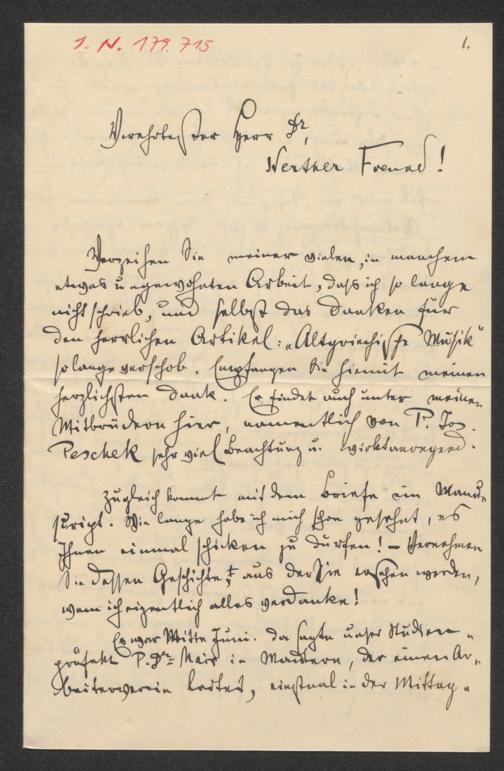 I. N. 179.715
1.
Verehrtester Herr Dr,
Werther Freund!
Verzeihen Sie meiner vielen, in manchem
etwas ungewohnten Arbeit, daß ich so lange
nicht schrieb, und selbst das Danken für
den herrlichen Artikel: „Altgriechische Musik“
so lange verschob. Empfangen Sie hiemit meinen
herzlichsten Dank. Er findet auch unter meinen
Mitbrüdern hier, namentlich von P. Jos.
Peschek sehr viel Beachtung u. wirkt anregend.
Zugleich kommt mit dem Briefe ein Manu-
skript. Wie lange habe ich mich schon gesehnt, es
Ihnen einmal schicken zu dürfen! – Vernehmen
Sie dessen Geschichte, aus der Sie ersehen werden,
wem ich eigentlich alles verdanke!
Es war Mitte Juni. Da sagte unser Studien-
präfekt P. Dr. Mair in Mautern, der einen Ar-
beiterverein leitet, einstmal in der Mittag-